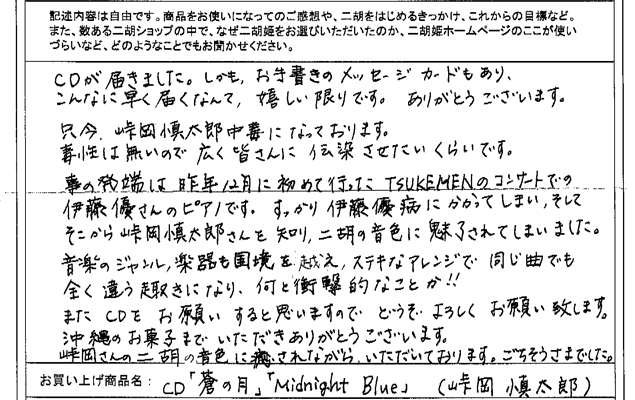 記述内容は自由です。商品をお使いになってのご感想や、二胡をはじめるきっかけ、これからの目標など。
また、数ある二胡ショップの中で、なぜ二胡姫をお選びいただいたのか、二胡姫ホームページのここが使い
づらいなど、どのようなことでもお聞かせください。
CDが届きました。しかも、お手書きのメッセージカードもあり、
こんなに早く届くなんて、嬉しい限りです。ありがとうございます。
只今、峠岡慎太郎中毒になっております。
毒性は無いので広く皆さんに伝染させたいくらいです。
事の発端は昨年12月に初めて行ったTSUKEMENのコンサートでの
伊藤優さんのピアノです。すっかり伊藤優病にかかってしまい、そして
そこから峠岡慎太郎さんを知り、二胡の音色に魅了されてしまいました。
音楽のジャンル,楽器も国境を越え,ステキなアレンジで同じ曲でも
全く違う趣きになり、何と衝撃的なことか!!
またCDをお願いすると思いますのでどうぞよろしくお願い致します。
沖縄のお菓子までいただきありがとうございます。
峠岡さんの二胡の音色に癒されながら、いただいております。ごちそうさまでした。
お買い上げ商品名: CD「蒼の月」「Midnight Blue」 (峠岡 慎太郎)